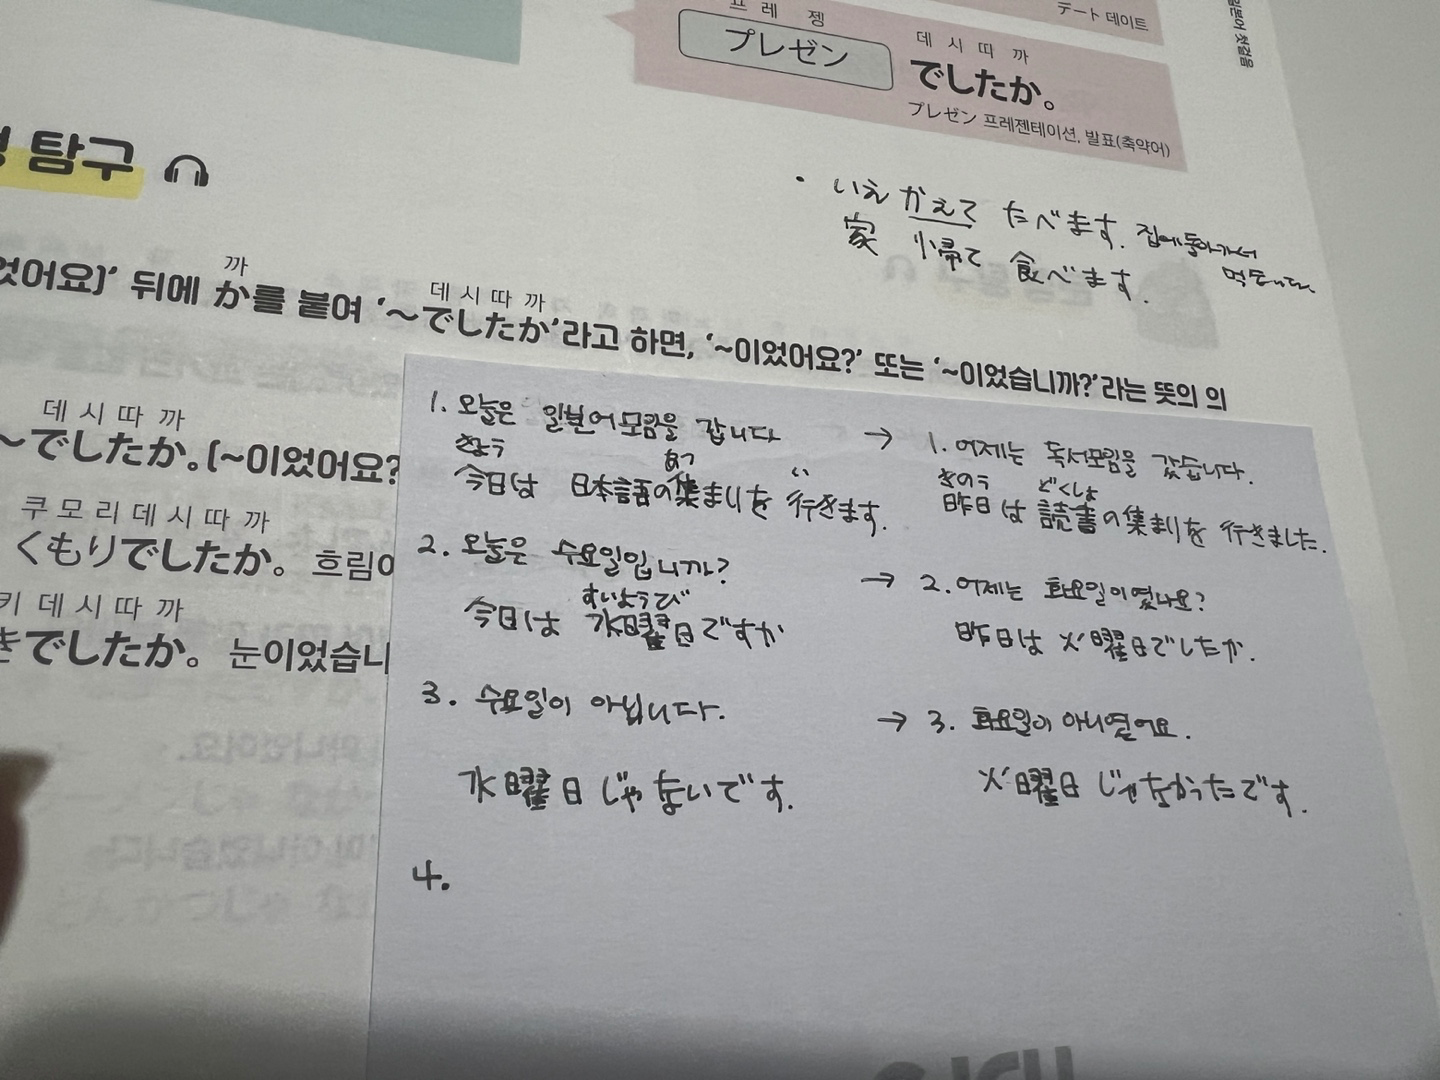 デート 데이트
일본어 첫걸음
프레젠
プレゼン
데시따까
でしたか。
プレゼン 프레젠테이션, 발표(축약어)
탐구
・ いえ かえて たべます. 집에돌아가서
家 帰て 食べます.
었어요]’ 뒤에 か를 붙여 ‘～でしたか’라고 하면, ‘~이었어요?’ 또는 ‘~이었습니까?’라는 뜻의 의
까
데시따까
데시따까
～でしたか。(~이었어요?
쿠모리데시따까
くもりでしたか。 흐림이
키데시따까
きでしたか。 눈이었습니
1. 오늘은 일본어모임을 갑니다
きょう あつ い
今日は 日本語の集まりを 行きます.
→ 1. 어제는 독서모임을 갔습니다.
きのう どくしょ
昨日は 読書の集まりを 行きました.
2. 오늘은 수요일입니까?
すいようび
今日は 水曜日ですか
→ 2. 어제는 화요일이었나요?
昨日は 火曜日でしたか.
3. 수요일이 아닙니다.
水曜日じゃないです.
→ 3. 화요일이 아니였어요.
火曜日じゃなかったです.
4.